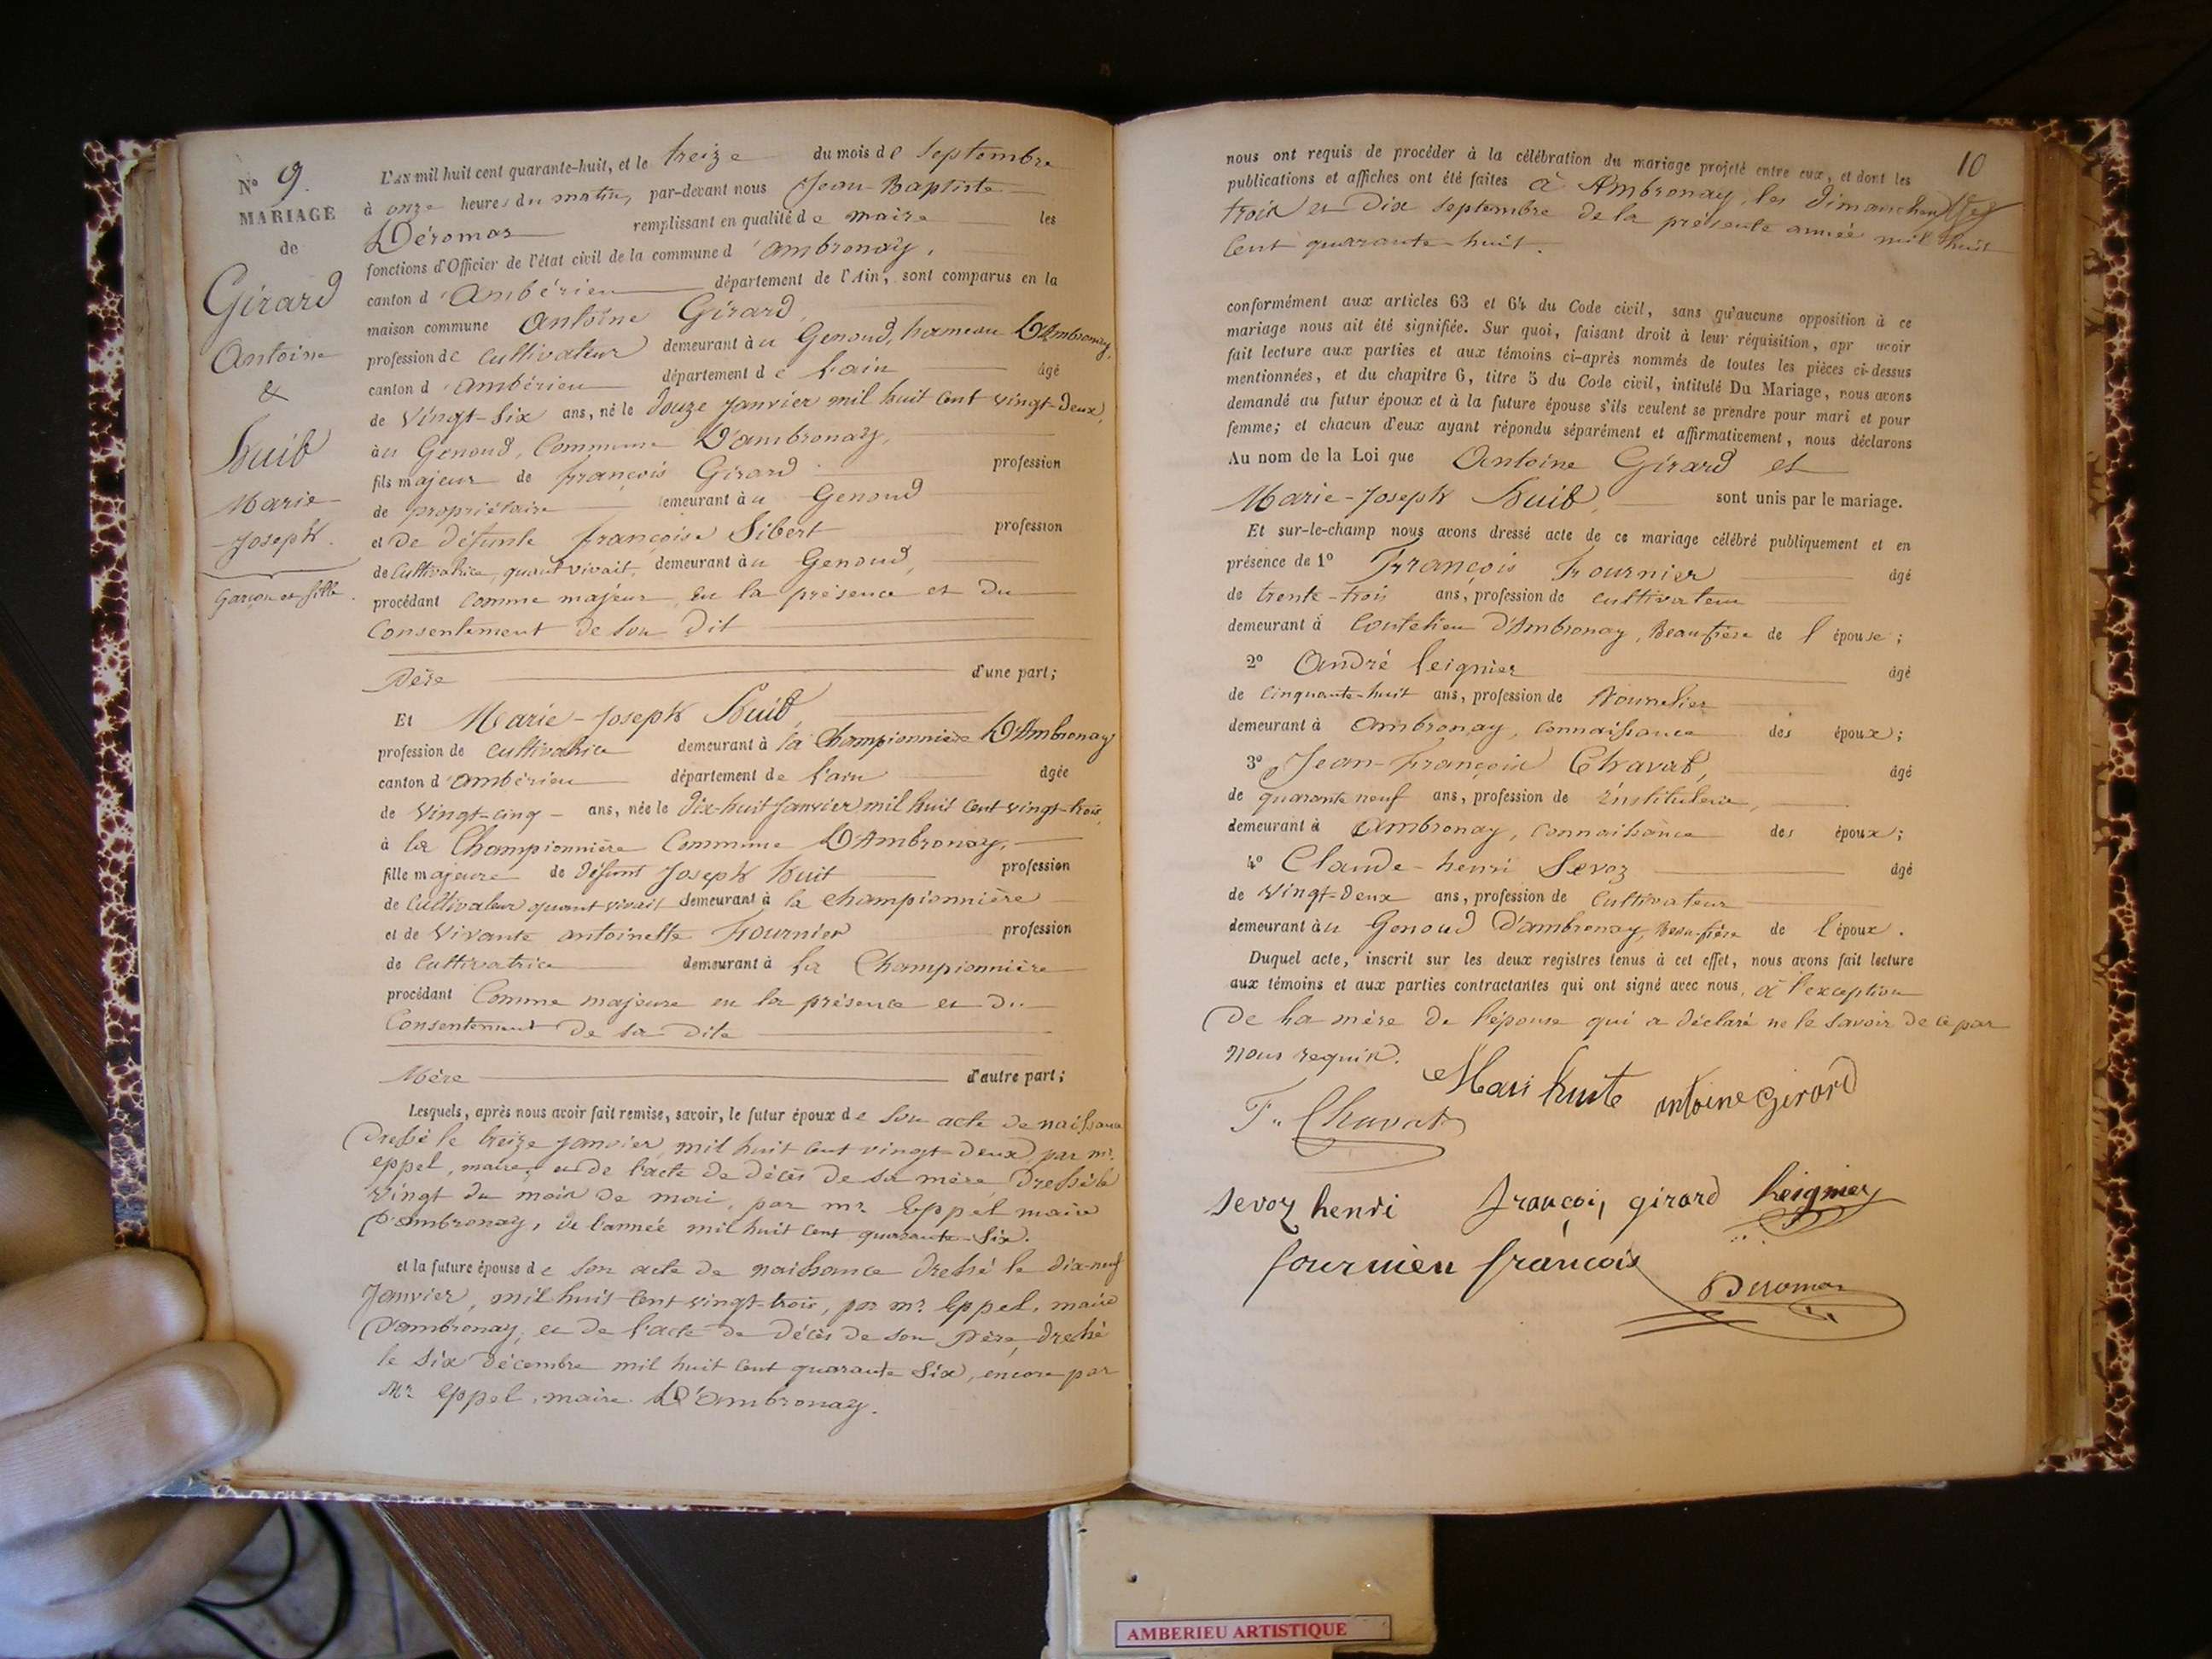 N° 9.
MARIAGE
de
Girard
Antoine
&
Huit
Marie-
Joseph.
Garçon et fille.
L'AN mil huit cent quarante-huit, et le treize du mois de Septembre
à onze heures du matin, par-devant nous Jean-Baptiste
Déromas remplissant en qualité de maire les
fonctions d'Officier de l'état civil de la commune d'ambronay,
canton d'Ambérieu département de l'Ain, sont comparus en la
maison commune Antoine Girard,
profession de cultivateur demeurant au Genoud, hameau D'Ambronay,
canton d'ambérieu département de l'ain âgé
de vingt-six ans, né le douze janvier mil huit cent vingt-deux,
au Genoud, Commune D'ambronay,
fils majeur de françois Girard profession
de propriétaire demeurant au Genoud
et de défunte françoise Sibert profession
de cultivatrice, quant vivait, demeurant au Genoud,
procédant comme majeur en la présence et du
Consentement de son dit
Père d'une part;
Et Marie-Joseph Huit,
profession de cultivatrice demeurant à la Championnière D'Ambronay
canton d'ambérieu département de l'ain âgée
de vingt-cinq ans, née le dix-huit Janvier mil huit cent vingt-trois,
à la Championnière Commune D'Ambronay,
fille majeure de défunt Joseph Huit profession
de Cultivateur quant vivait demeurant à la championnière
et de vivante antoinette Fournier profession
de Cultivatrice demeurant à la Championnière
procédant Comme majeure en la présence et du
Consentement de sa dite
Mère d'autre part;
Lesquels, après nous avoir fait remise, savoir, le futur époux de son acte de naissance
dressé le treize janvier, mil huit cent vingt-deux, par mr.
eppel, maire, et de l'acte de décès de sa mère, dressé le
vingt du mois de mai, par mr Eppel maire
d'ambronay, de l'année mil huit cent quarante-six.
et la future épouse de son acte de naissance dressé le dix-neuf
Janvier, mil huit cent vingt-trois, par mr Eppel, maire
d'ambronay, et de l'acte de décès de son père, dressé
le six Décembre mil huit cent quarante six, encore par
Mr eppel, maire D'ambronay.
10
nous ont requis de procéder à la célébration du mariage projeté entre eux, et dont les
publications et affiches ont été faites à Ambronay, les dimanches
trois et Dix Septembre de la présente année mil huit
Cent quarante-huit.
conformément aux articles 63 et 64 du Code civil, sans qu'aucune opposition à ce
mariage nous ait été signifiée. Sur quoi, faisant droit à leur réquisition, apr avoir
fait lecture aux parties et aux témoins ci-après nommés de toutes les pièces ci-dessus
mentionnées, et du chapitre 6, titre 5 du Code civil, intitulé Du Mariage, nous avons
demandé au futur époux et à la future épouse s'ils veulent se prendre pour mari et pour
femme; et chacun d'eux ayant répondu séparément et affirmativement, nous déclarons
Au nom de la Loi que Antoine Girard et
Marie-Joseph Huit, sont unis par le mariage.
Et sur-le-champ nous avons dressé acte de ce mariage célébré publiquement et en
présence de 1° François Fournier âgé
de trente-trois ans, profession de cultivateur
demeurant à Coutelieu d'Ambronay, Beau-frère de l'épouse;
2° André Leignier âgé
de Cinquante-huit ans, profession de
demeurant à Ambronay, connaissance des époux;
3° Jean-François Chavat, âgé
de quarante neuf ans, profession de instituteur,
demeurant à Ambronay, Connaissance des époux;
4° Claude-henri Sevoz âgé
de Vingt-deux ans, profession de Cultivateur
demeurant au Genoud d'ambronay, beau-frère de l'époux.
Duquel acte, inscrit sur les deux registres tenus à cet effet, nous avons fait lecture
aux témoins et aux parties contractantes qui ont signé avec nous, à l'exception
De la mère de l'épouse qui a déclaré ne le savoir de ce par
nous requis.
F. Chavat
Mari huite
antoine Girard
Sevoz henri
françois girard
Leignier
fournier françois
Deromas
AMBERIEU ARTISTIQUE